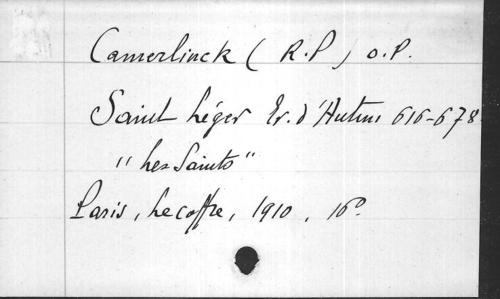 Camerlinck (R.P) o.P.
Saint Léger Ev. d'Autun 616-678
"Les Saints"
Paris, Lecoffre, 1910, 16°